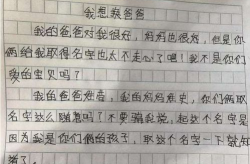 我想对爸爸
我的爸爸对我很好，妈妈也很好，但是你
俩给我取得名字也太不走心了吧！我不是你们
的宝贝吗？
我的爸爸姓，我的妈妈姓史，你们俩取
名字这么随意吗？不要骗我说，起这个名字是
因为我是你们俩的孩子，取这个名字一下就
了。